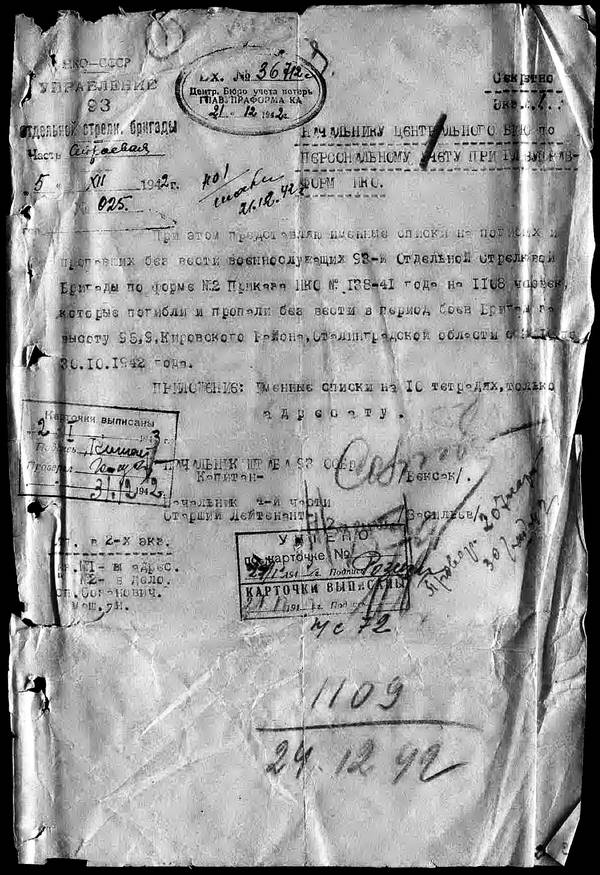 НКО–СССР
УПРАВЛЕНИЕ
93
отдельной стрелк. бригады
Часть Строевая
5 XII 1942г.
№ 025.
Вх. № 36712с
Центр. Бюро учета потерь
ГЛАВУПРАФОРМА КА
21 12 1942г.
Секретно
Экз.
НАЧАЛЬНИКУ ЦЕНТРАЛЬНОГО БЮРО по
ПЕРСОНАЛЬНОМУ УЧЕТУ ПРИ ГЛАВУПРАВ-
ФОРМ НКО.
21.12.42г
При этом представляю именные списки на погибших и
пропавших без вести военнослужащих 93-й Отдельной Стрелковой
Бригады по форме №2 Приказа НКО № 138-41 года на 1108 человек,
которые погибли и пропали без вести в период боев Бригады за
высоту Кировского Района, Сталинградской области
30.10.1942 года.
ПРИЛОЖЕНИЕ: Именные списки на 10 тетрадях, только
адресату.
Карточки выписаны
2 I 1943 г.
Подпись
Проверил
31.12 1942г.
НАЧАЛЬНИК ШТАБА 93 ОСБР
Капитан- /Бексак/.
Начальник 4-й части
Старший Лейтенант- /Васильев/
в 2-х экз.
экз.№1- в адрес.
№2- в дело.
маш.
УЧТЕНО
по карточке №
Подпись
КАРТОЧКИ ВЫПИСАНЫ
Подпись
Провер.
30
42
72
1109
24.12.42